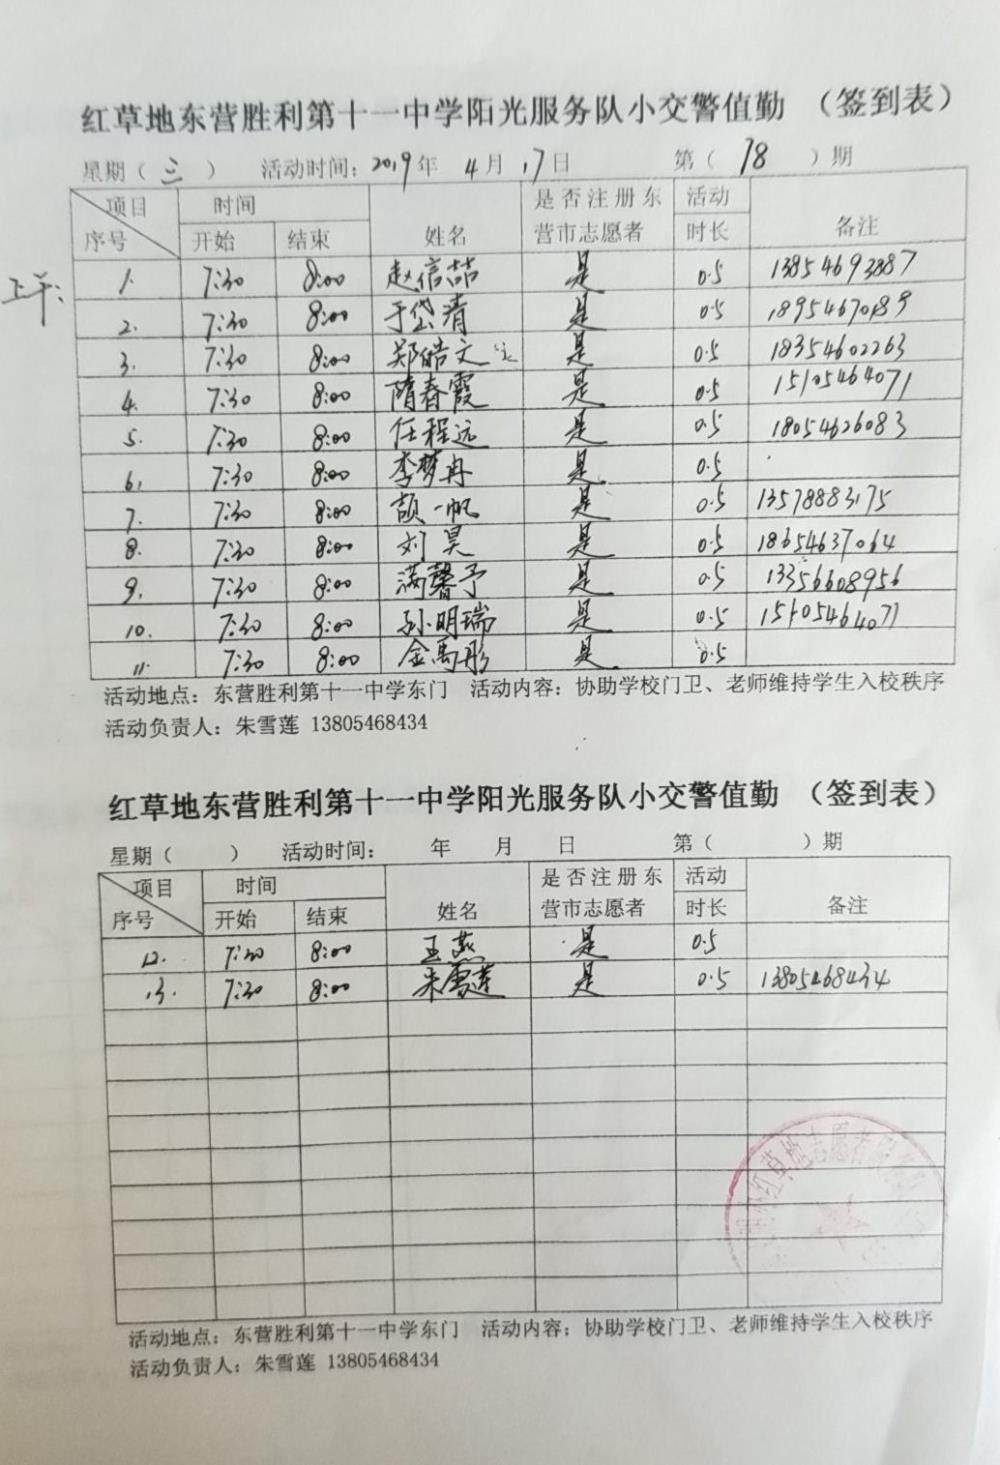 红草地东营胜利第十一中学阳光服务队小交警值勤 （签到表）
星期（ 三 ） 活动时间：2019年 4月 17日 第（ 78 ）期
项目 时间 是否注册东 活动
序号 开始 结束 姓名 营市志愿者 时长 备注
上午：
1. 7:30 8:00 赵信喆 是 0.5 13854693887
2. 7:30 8:00 于岱清 是 0.5 18954670189
3. 7:30 8:00 郑皓文 是 0.5 18354602263
4. 7:30 8:00 隋春霞 是 0.5 15105464071
5. 7:30 8:00 任程远 是 0.5 18054626083
6. 7:30 8:00 李梦冉 是 0.5
7. 7:30 8:00 颉一帆 是 0.5 13578883175
8. 7:30 8:00 刘昊 是 0.5 18654637064
9. 7:30 8:00 满馨予 是 0.5 13356608956
10. 7:30 8:00 孙明瑞 是 0.5 15105464071
11. 7:30 8:00 金禹彤 是 0.5
活动地点：东营胜利第十一中学东门 活动内容：协助学校门卫、老师维持学生入校秩序
活动负责人：朱雪莲 13805468434
红草地东营胜利第十一中学阳光服务队小交警值勤 （签到表）
星期（ ） 活动时间： 年 月 日 第（ ）期
项目 时间 是否注册东 活动
序号 开始 结束 姓名 营市志愿者 时长 备注
12. 7:30 8:00 王燕 是 0.5
13. 7:30 8:00 朱雪莲 是 0.5 13805468434
红草地志愿者
活动地点：东营胜利第十一中学东门 活动内容：协助学校门卫、老师维持学生入校秩序
活动负责人：朱雪莲 13805468434